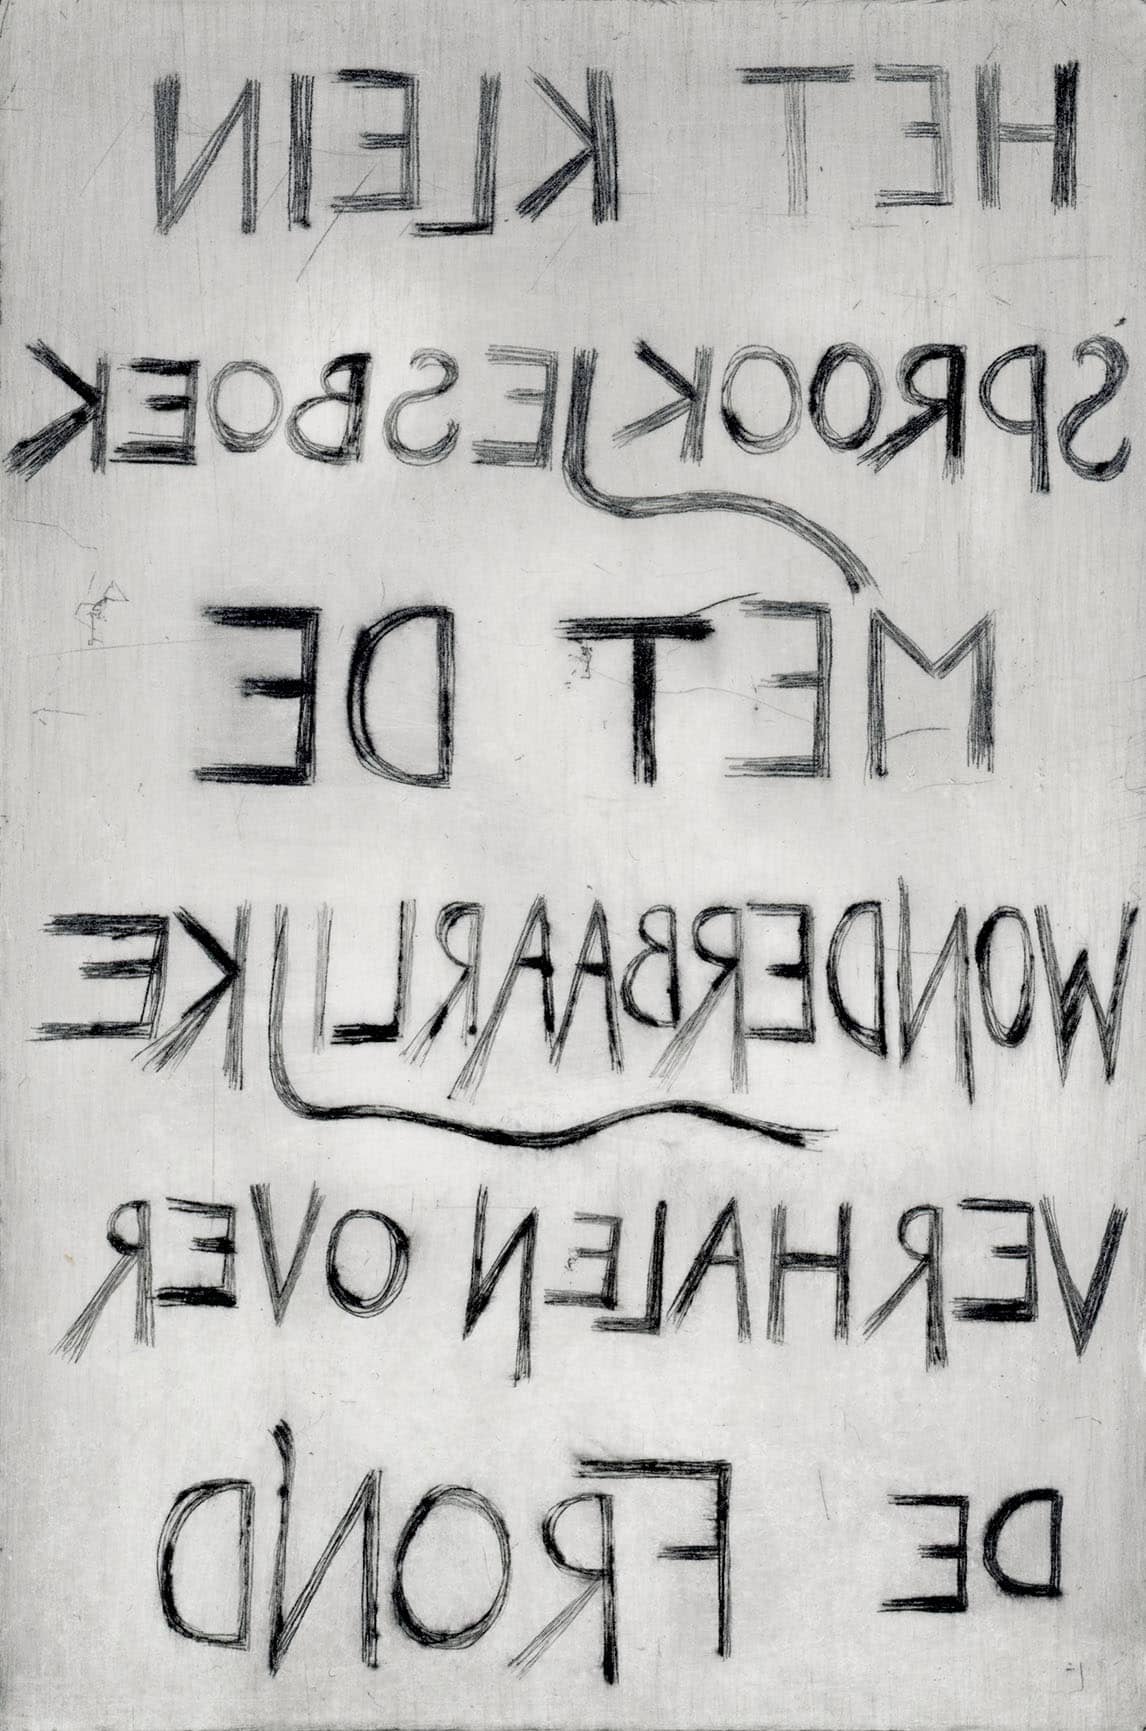 HET KLEIN
SPROOKJESBOEK
MET DE
WONDERBAARLIJKE
VERHALEN OVER
DE FROND